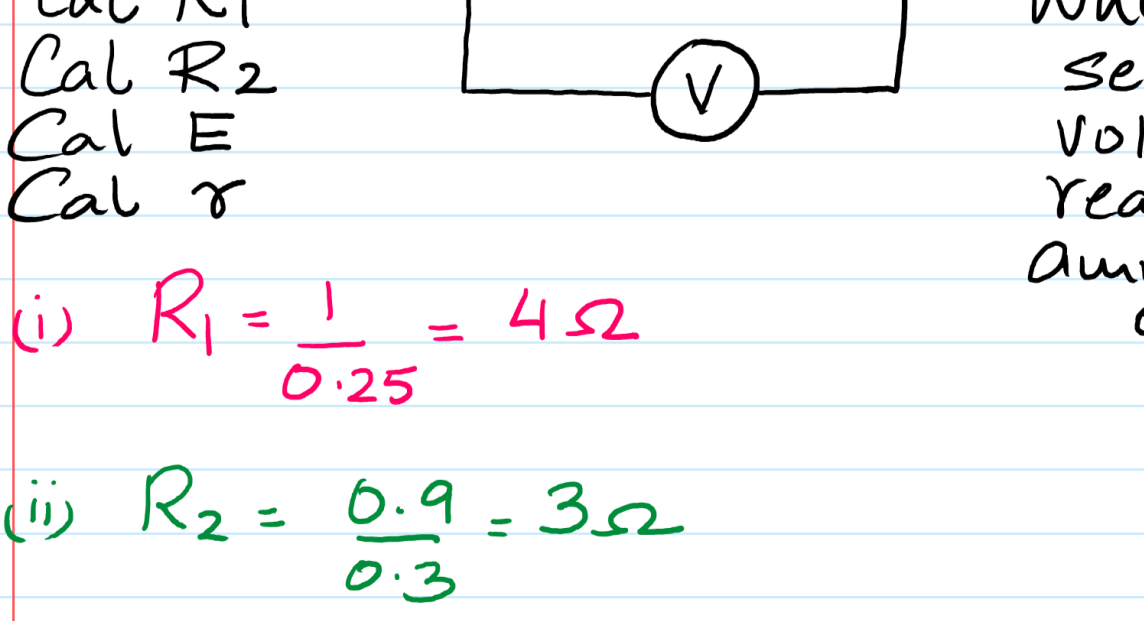 Cal R1
Cal R2
Cal E
Cal r
V
se
(i) R1 = 1/0.25 = 4Ω
(ii) R2 = 0.9/0.3 = 3Ω